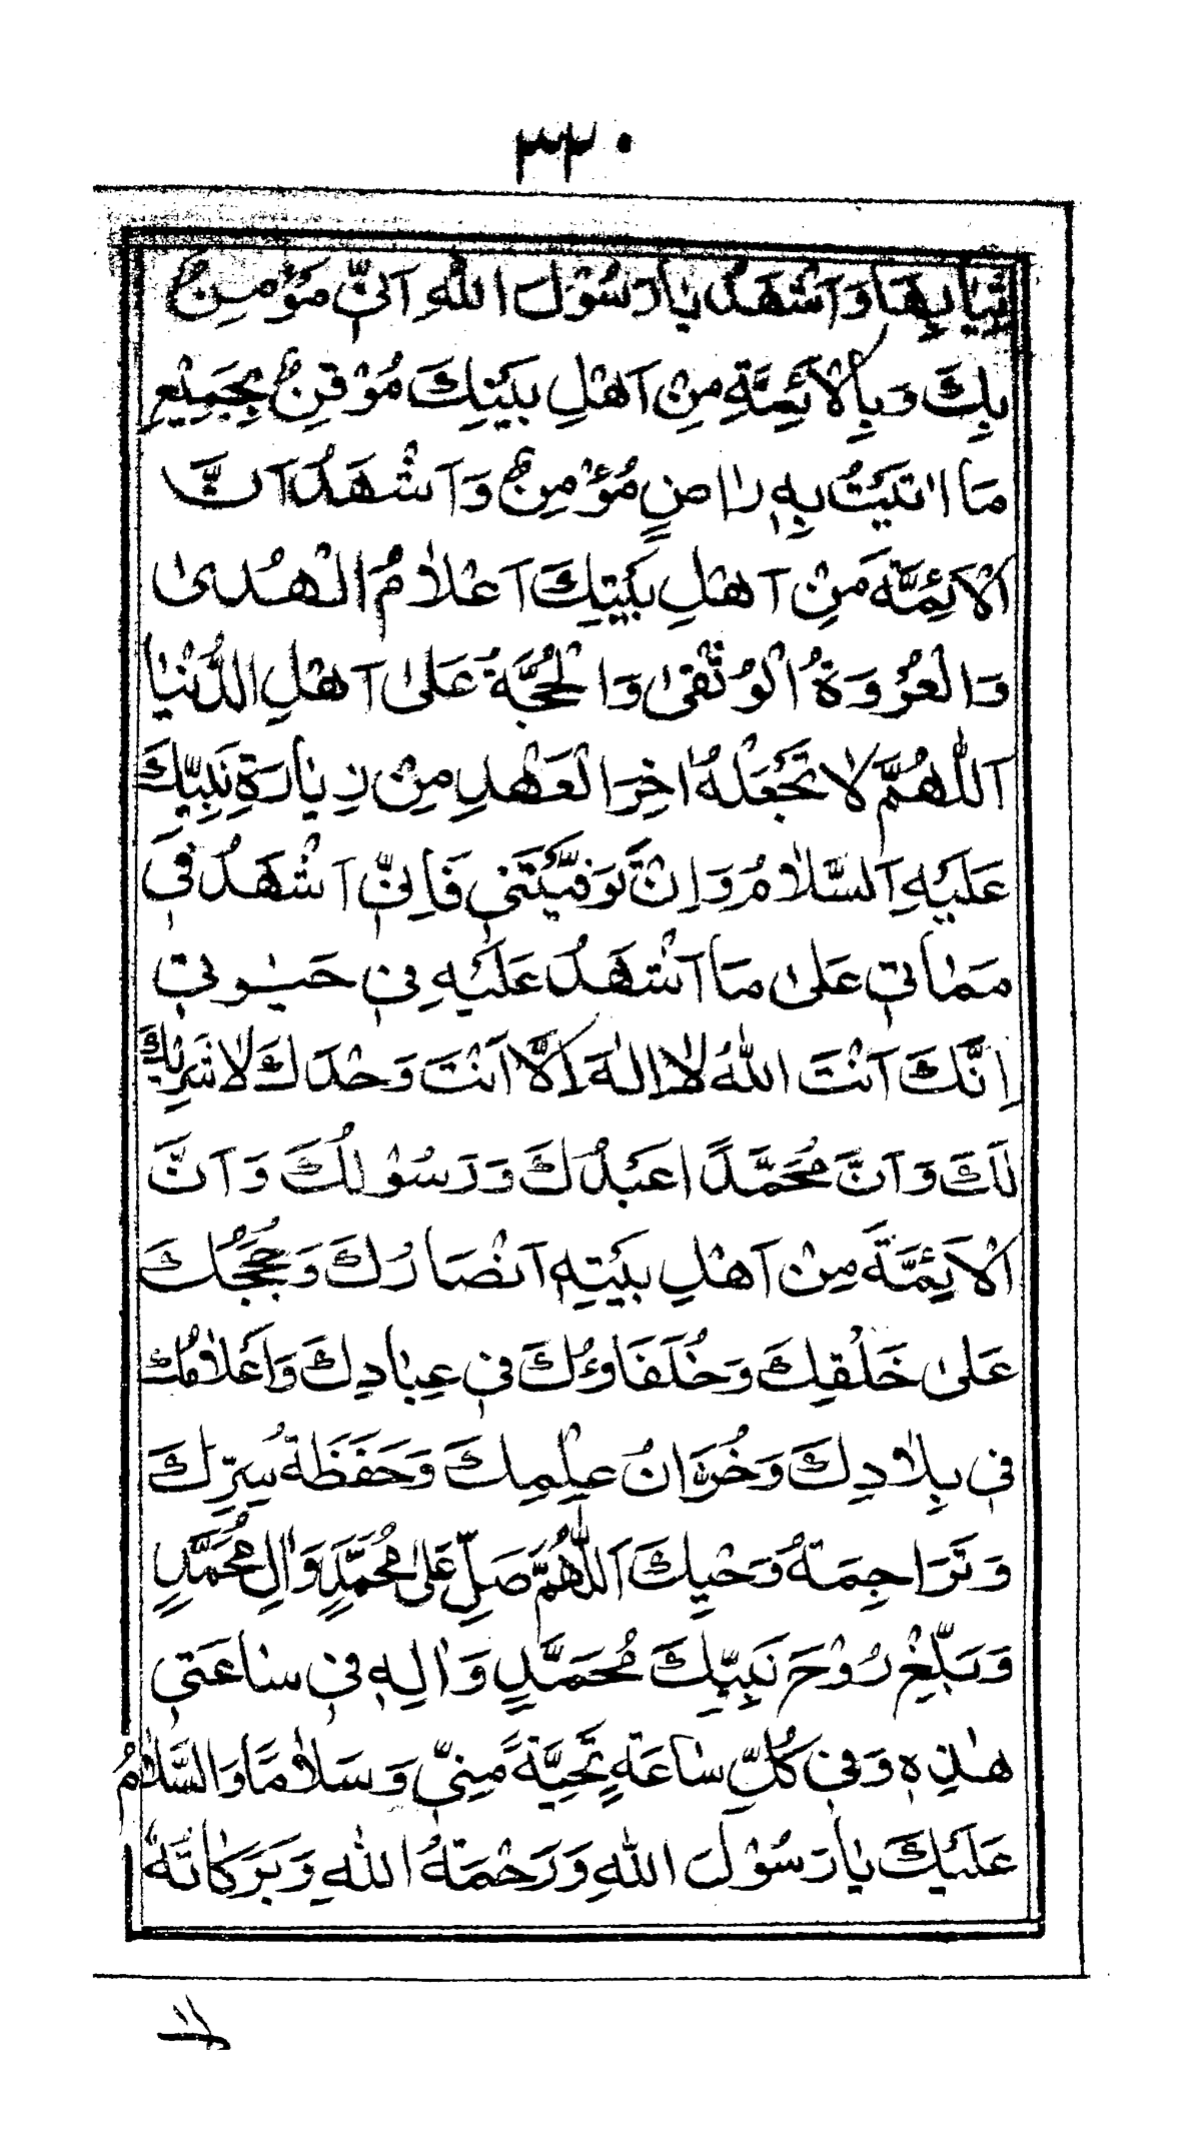 ٣٢٠
ثِيَابِهَا وَاَشْهَدُ يَارَسُوْلَ اللهِ اَنِّيْ مُؤْمِنٌ
بِكَ وَبِالْاَئِمَّةِ مِنْ اَهْلِ بَيْتِكَ مُوْقِنٌ بِجَمِيْعِ
مَا اَتَيْتَ بِهٖ رَاضٍ مُؤْمِنٌ وَاَشْهَدُ اَنَّ
الْاَئِمَّةَ مِنْ اَهْلِ بَيْتِكَ اَعْلَامُ الْهُدىٰ
وَالْعُرْوَةُ الْوُثْقىٰ وَالْحُجَّةُ عَلىٰ اَهْلِ الدُّنْيَا
اَللّٰهُمَّ لَا تَجْعَلْهُ اٰخِرَ الْعَهْدِ مِنْ زِيَارَةِ نَبِيِّكَ
عَلَيْهِ السَّلَامُ وَاِنْ تَوَفَّيْتَنِيْ فَاِنِّيْ اَشْهَدُ فِيْ
مَمَاتِيْ عَلىٰ مَا اَشْهَدُ عَلَيْهِ فِيْ حَيٰوتِيْ
اِنَّكَ اَنْتَ اللهُ لَا اِلٰهَ اِلَّا اَنْتَ وَحْدَكَ لَا شَرِيْكَ
لَكَ وَاَنَّ مُحَمَّدًا عَبْدُكَ وَرَسُوْلُكَ وَاَنَّ
الْاَئِمَّةَ مِنْ اَهْلِ بَيْتِهٖ اَنْصَارُكَ وَحُجَجُكَ
عَلىٰ خَلْقِكَ وَخُلَفَاؤُكَ فِيْ عِبَادِكَ وَاَعْلَامُكَ
فِيْ بِلَادِكَ وَخُزَّانُ عِلْمِكَ وَحَفَظَةُ سِرِّكَ
وَتَرَاجِمَةُ وَحْيِكَ اَللّٰهُمَّ صَلِّ عَلىٰ مُحَمَّدٍ وَاٰلِ مُحَمَّدٍ
وَبَلِّغْ رُوْحَ نَبِيِّكَ مُحَمَّدٍ وَاٰلِهٖ فِيْ سَاعَتِيْ
هٰذِهٖ وَفِيْ كُلِّ سَاعَةٍ تَحِيَّةً مِنِّيْ وَسَلَامًا وَالسَّلَامُ
عَلَيْكَ يَارَسُوْلَ اللهِ وَرَحْمَةُ اللهِ وَبَرَكَاتُهٗ